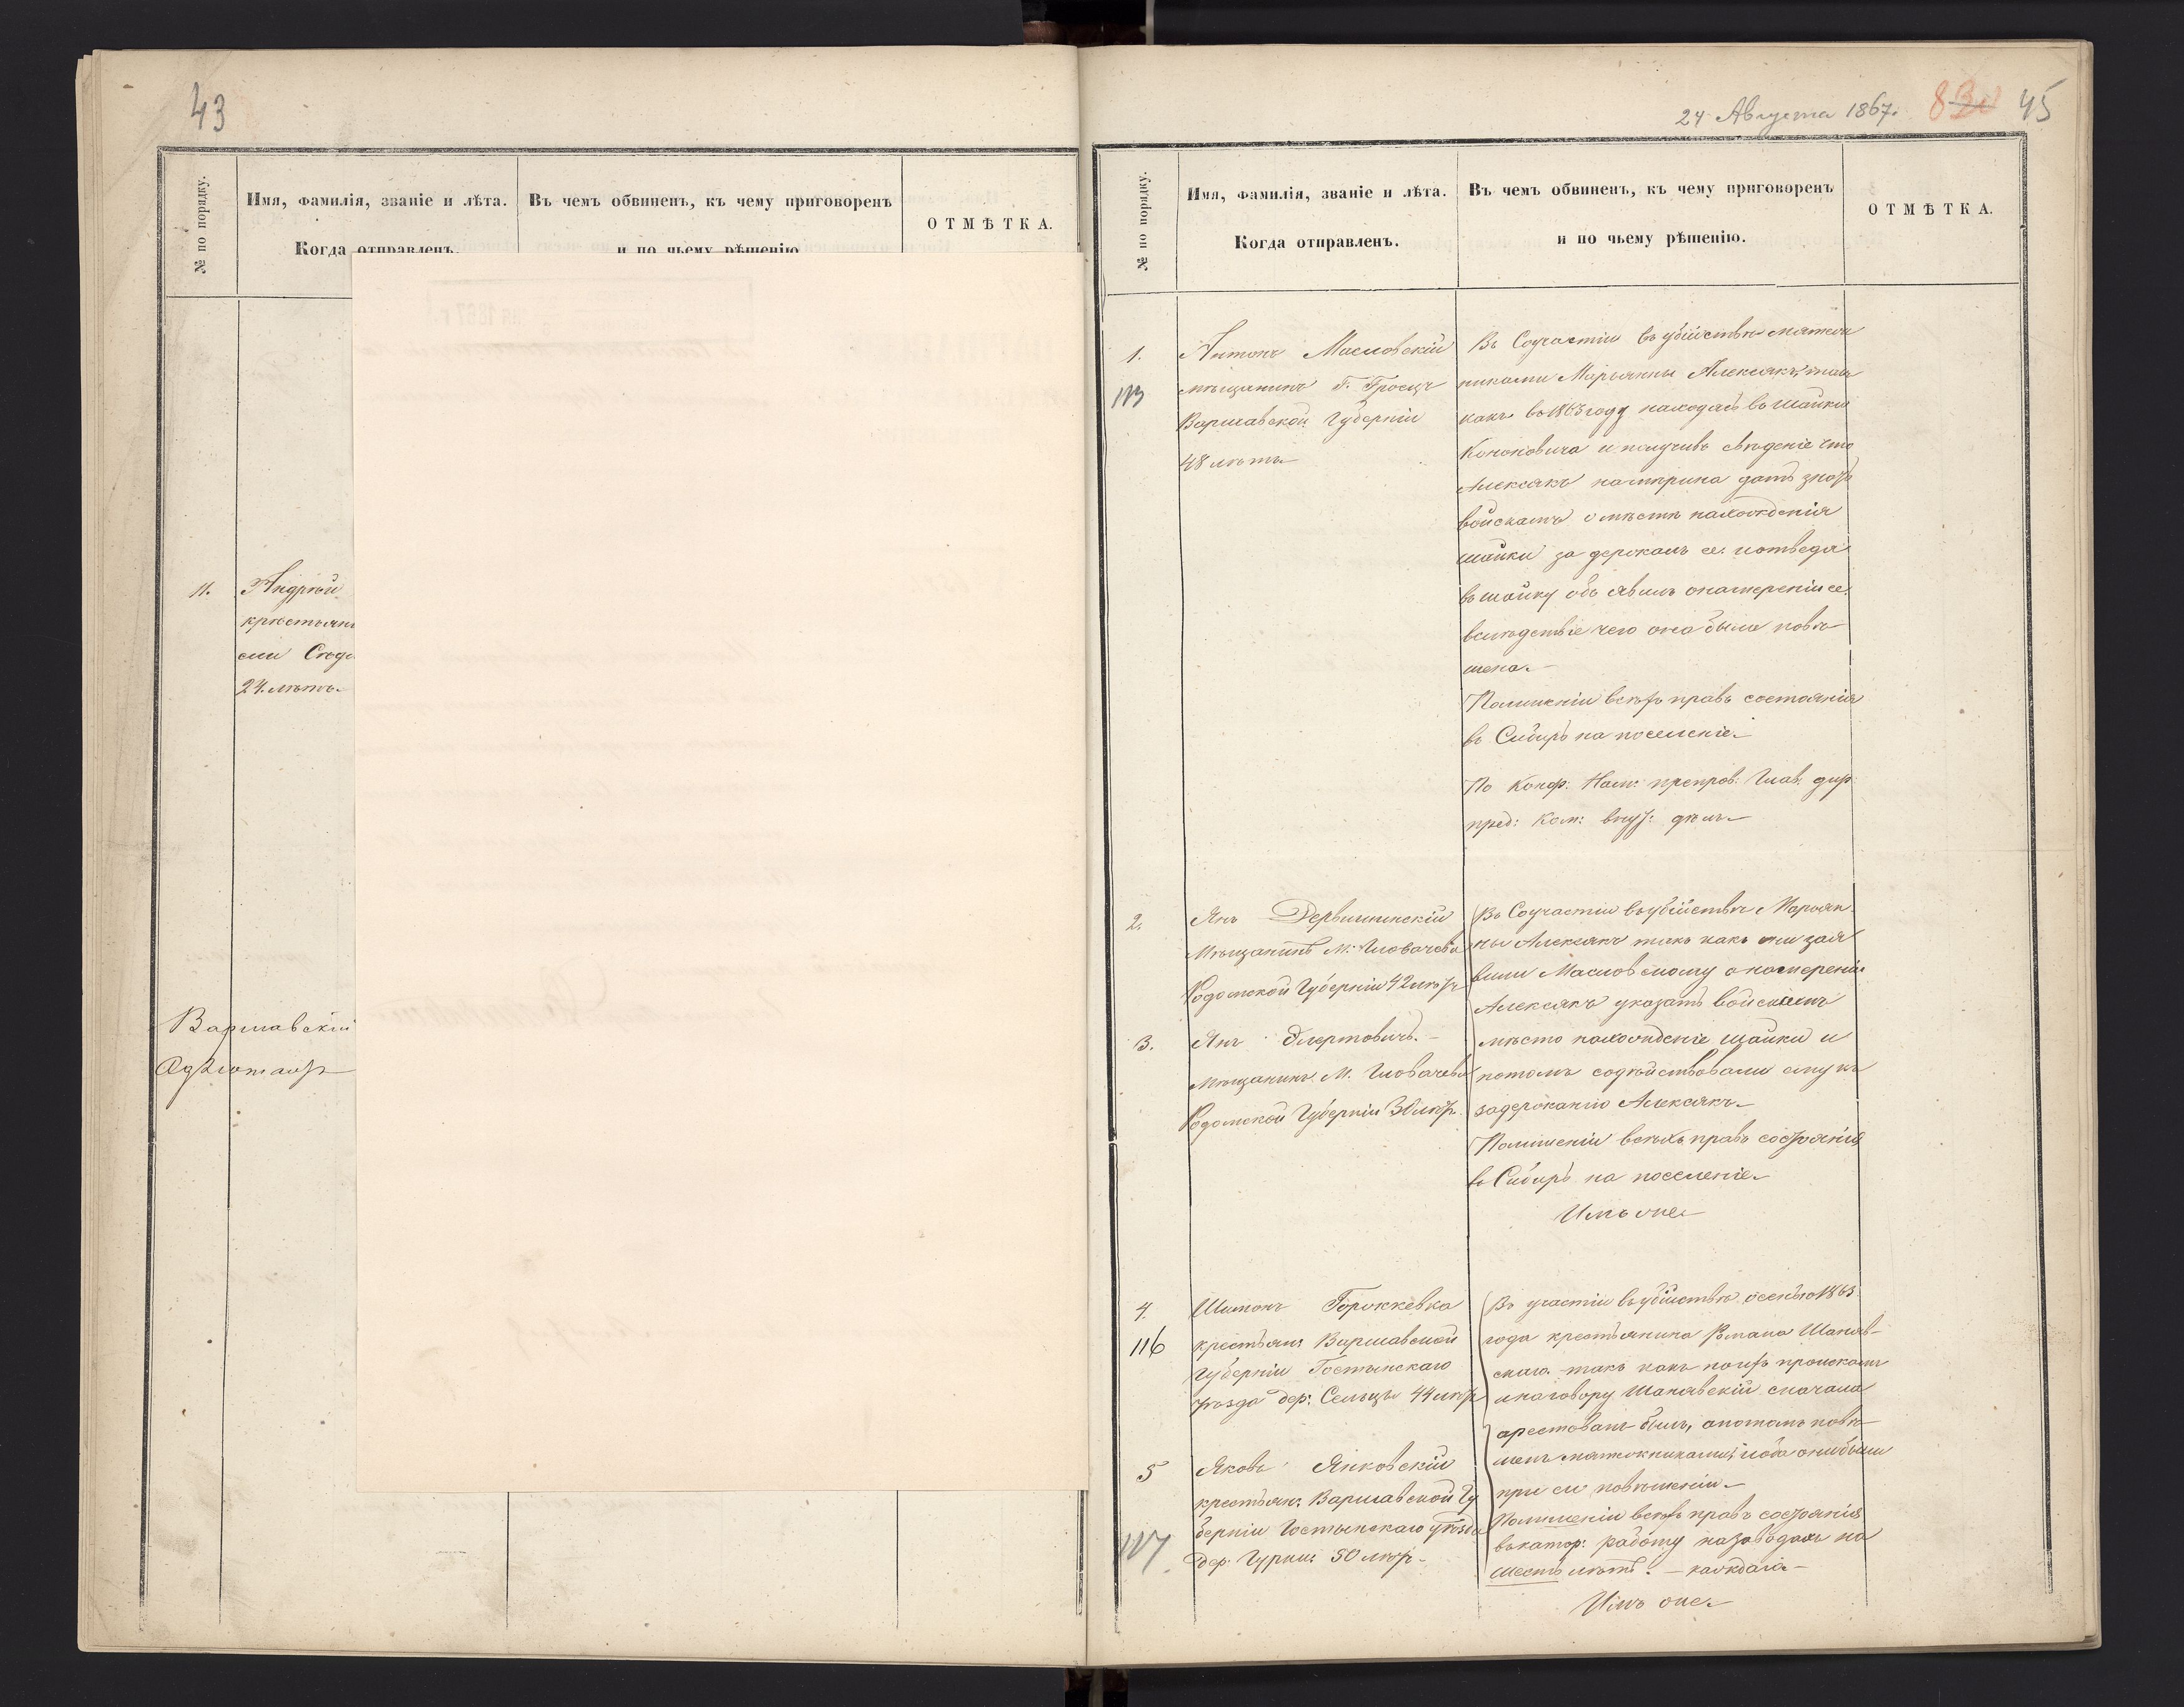 43
№ по порядку.
Имя, фамилія, званіе и лѣта.
Когда отправленъ.
Въ чемъ обвиненъ, къ чему приговоренъ
и по чьему рѣшенію
ОТМѢТКА.
11.
Андрей
крестьян
24 лѣтъ
Варшавскій
24 Августа 1867.
45
№ по порядку.
Имя, фамилія, званіе и лѣта.
Когда отправленъ.
Въ чемъ обвиненъ, къ чему приговоренъ
и по чьему рѣшенію.
ОТМѢТКА.
1.
113
Антонъ Масловскій
мѣщанинъ Г. Гроецъ
Варшавской Губерніи
48 лѣтъ
Въ Соучастіи въ убійствѣ мятеж
никами Марьянны Алексякъ, такъ
какъ въ 1863 году находясь въ шайкѣ
Кононовича и получивъ свѣденіе что
Алексякъ намѣрена дать знать
войскамъ о мѣстѣ нахожденія
шайки задержалъ ее и отведя
въ шайку объявилъ о намереніи ее,
вслѣдствіе чего она была повѣ
шена.
По лишеніи всѣхъ правъ состоянія
въ Сибирь на поселеніе.
По Конф: Нам: препров: Глав: дир:
пред: Ком: внут: дѣлъ
2.
Янъ
Мѣщанинъ М. Гловачева
Радомской Губерніи 42 лѣтъ
3.
Янъ
Мѣщанинъ М. Гловачева
Радомской Губерніи 30 лѣтъ
Въ Соучастіи въ убійствѣ Марьян
ны Алексякъ такъ какъ они зая
вили Масловскому о намереніи
Алексякъ указать войскамъ
мѣсто нахожденіе шайки и
потомъ содѣйствовали ему къ
задержанію Алексякъ
По лишеніи всѣхъ правъ состоянія
въ Сибирь на поселеніе
4.
116
Шимонъ
крестьян: Варшавской
Губерніи Гостынскаго
уѣзда дер: Сельцы 44 лѣтъ
5
117
Яковъ Янковскій
крестьян: Варшавской Гу
берніи Гостынскаго уѣзда
дер: 50 лѣтъ
Въ участіи въ убійствѣ осенью 1863
года крестьянина Романа Шаняв-
скаго такъ какъ по ихъ проискамъ
и наговору Шанявскій сначала
арестованъ былъ, а потомъ повѣ
шенъ мятежниками; и оба они были
при его повѣшеніи
По лишеніи всѣхъ правъ состоянія
въ катор: работу на заводахъ на
шесть лѣтъ. — каждаго